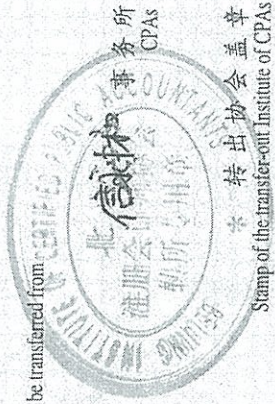 be transferred from
事务所
CPAs
INSTITUTE OF CERTIFIED PUBLIC ACCOUNTANTS
BEIJING
北
注册会
转所专用章
转出协会盖章
Stamp of the transfer-out Institute of CPAs